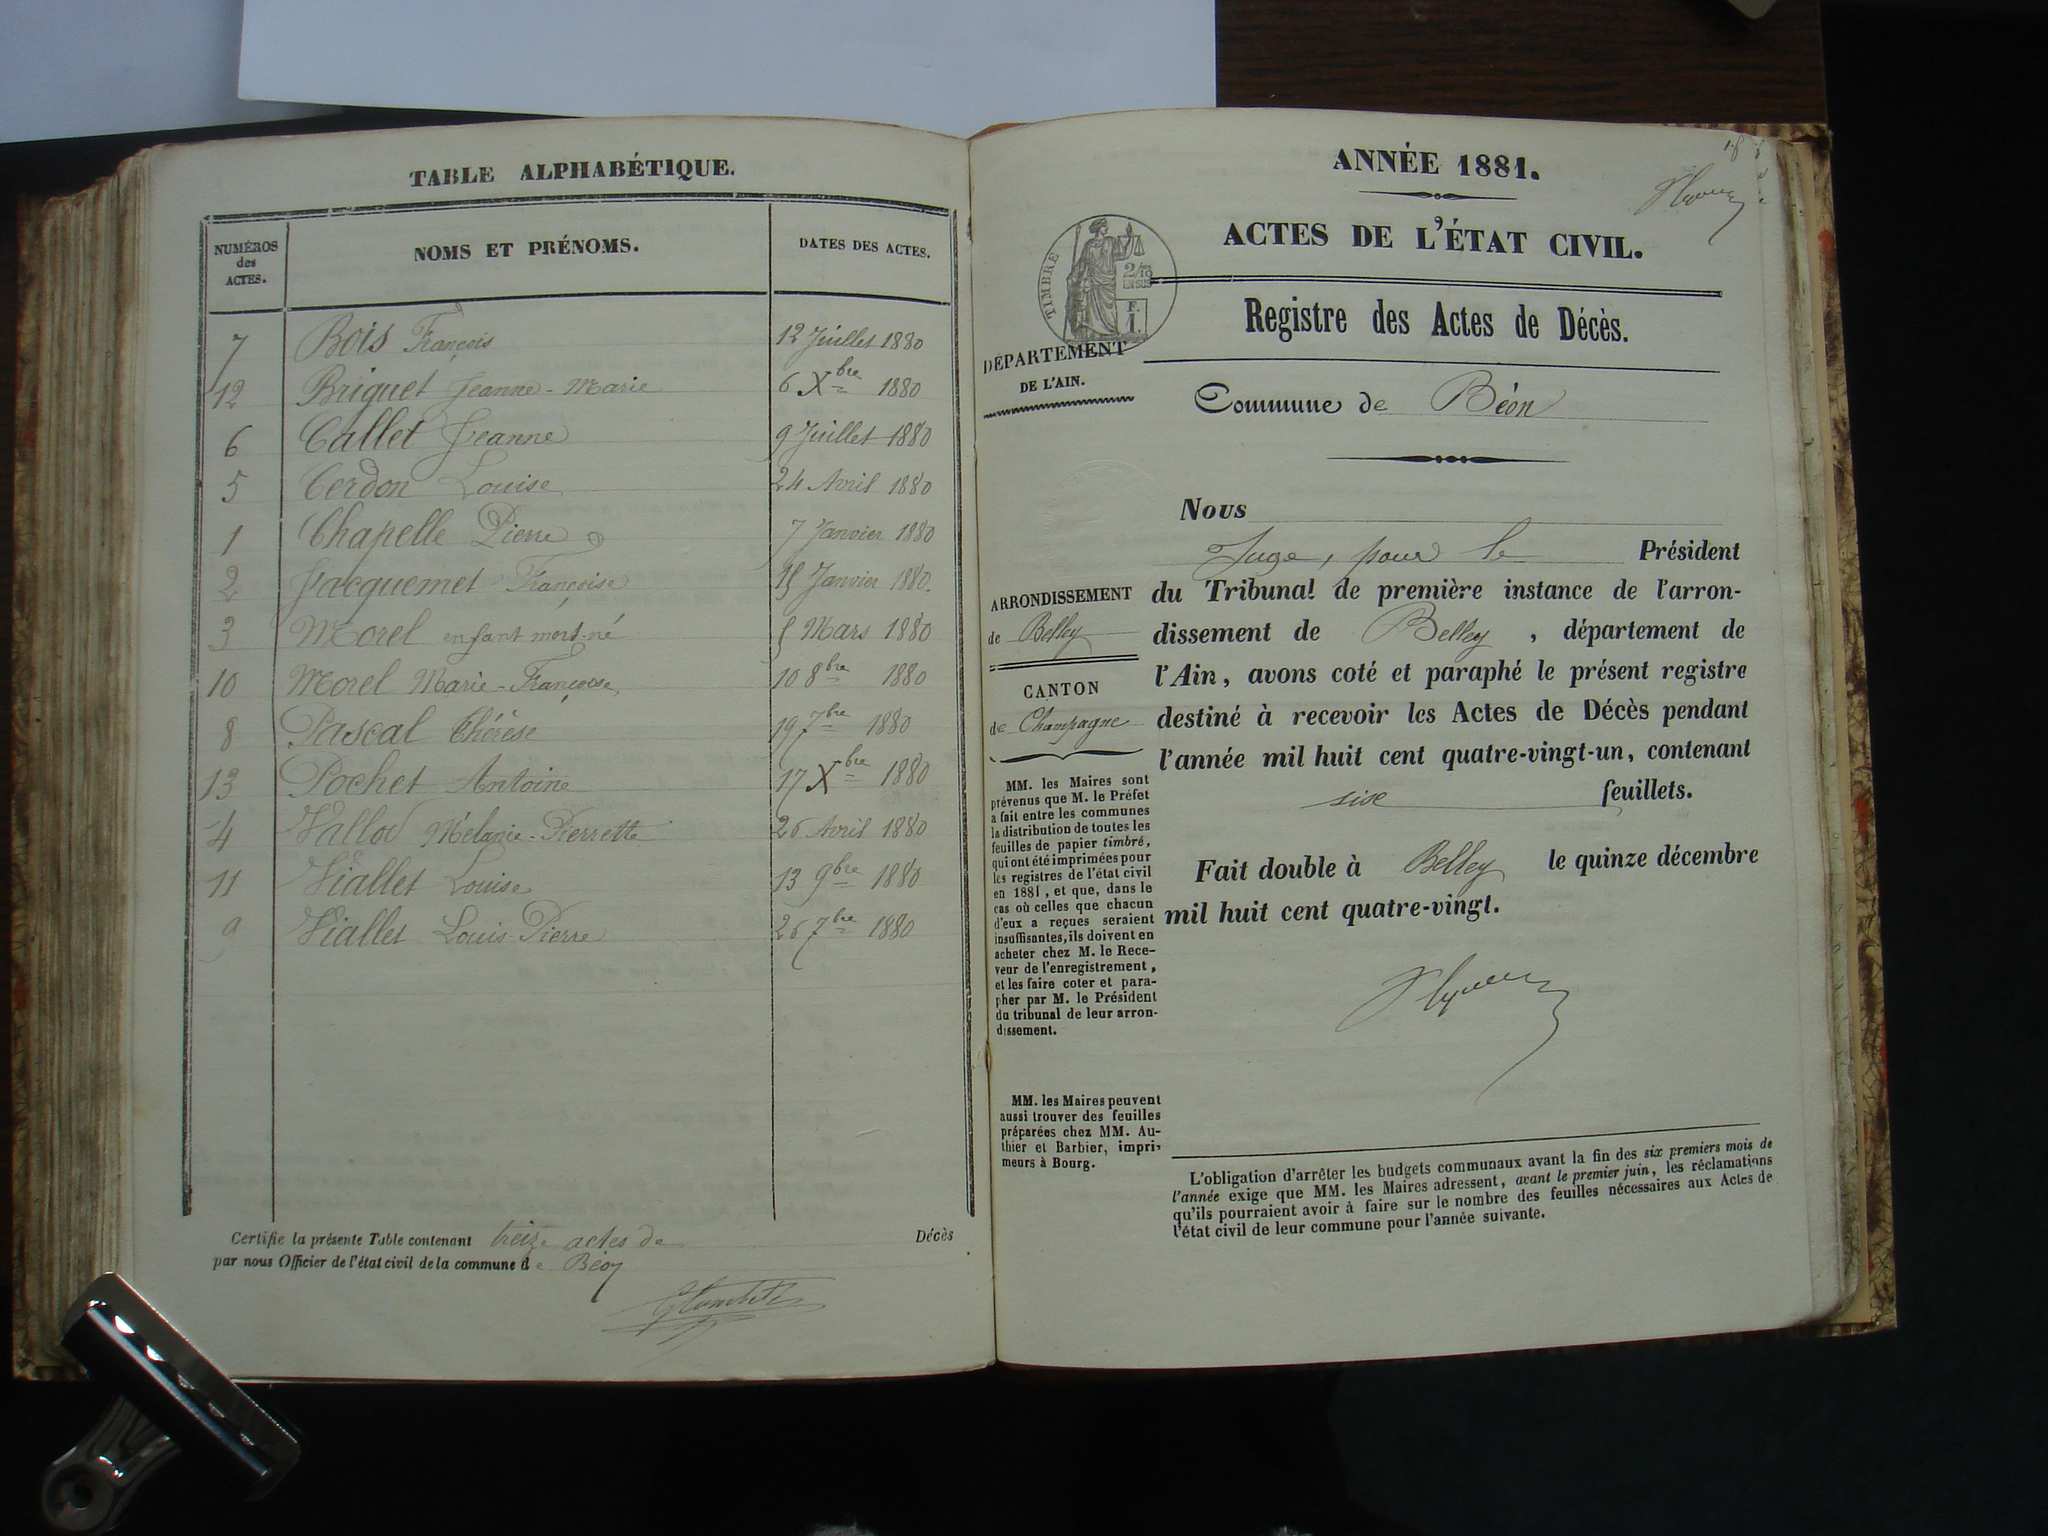 TABLE ALPHABÉTIQUE.
NUMÉROS
des
ACTES.
NOMS ET PRÉNOMS.
DATES DES ACTES.
7 Bois François 12 Juillet 1880
12 Briguet Jeanne-Marie 6 Xbre 1880
6 Callet Jeanne 9 Juillet 1880
5 Cerdon Louise 24 Avril 1880
1 Chapelle Pierre 7 Janvier 1880
2 Jacquemet Françoise 15 Janvier 1880.
3 Morel enfant mort-né 5 Mars 1880
10 Morel Marie-Françoise 10 8bre 1880
8 Pascal Thérèse 19 7bre 1880
13 Pochet Antoine 17 Xbre 1880
4 Vallod Mélanie-Pierrette 26 Avril 1880
11 Viallet Louise 13 9bre 1880
9 Viallet Louis-Pierre 26 7bre 1880
Certifie la présente Table contenant treize actes de Décès
par nous Officier de l'état civil de la commune de Béon
ANNÉE 1881.
ACTES DE L'ÉTAT CIVIL.
TIMBRE
2/10
EN SUS
F.
1.
Registre des Actes de Décès.
DÉPARTEMENT
DE L'AIN.
Commune de Béon
Nous
Juge, pour le Président
du Tribunal de première instance de l'arron-
dissement de Belley, département de
l'Ain, avons coté et paraphé le présent registre
destiné à recevoir les Actes de Décès pendant
l'année mil huit cent quatre-vingt-un, contenant
six feuillets.
Fait double à Belley le quinze décembre
mil huit cent quatre-vingt.
ARRONDISSEMENT
de Belley
CANTON
de Champagne
MM. les Maires sont
prévenus que M. le Préfet
a fait entre les communes
la distribution de toutes les
feuilles de papier timbré,
qui ont été imprimées pour
les registres de l'état civil
en 1881, et que, dans le
cas où celles que chacun
d'eux a reçues seraient
insuffisantes, ils doivent en
acheter chez M. le Rece-
veur de l'enregistrement,
et les faire coter et para-
pher par M. le Président
du tribunal de leur arron-
dissement.
MM. les Maires peuvent
aussi trouver des feuilles
préparées chez MM. Au-
thier et Barbier, impri-
meurs à Bourg.
L'obligation d'arrêter les budgets communaux avant la fin des six premiers mois de
l'année exige que MM. les Maires adressent, avant le premier juin, les réclamations
qu'ils pourraient avoir à faire sur le nombre des feuilles nécessaires aux Actes de
l'état civil de leur commune pour l'année suivante.